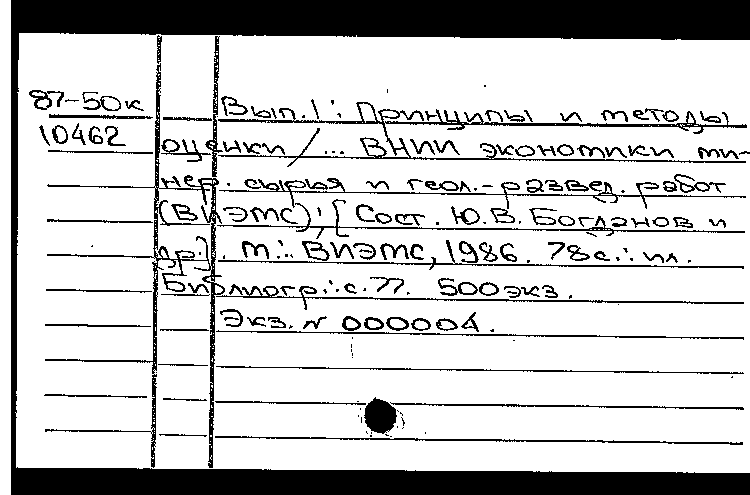 87-50к
10462
Вып.1: Принципы и методы
оценки / ... ВНИИ экономики ми-
нер. сырья и геол.-развед. работ
(ВИЭМС); [Сост. Ю.В. Богданов и
др.]. М.: ВИЭМС, 1986. 78с.: ил.
Библиогр.: с.77. 500экз.
Экз. N 000004.